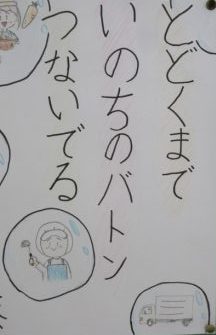 とどくまで
いのちのバトン
つないでる